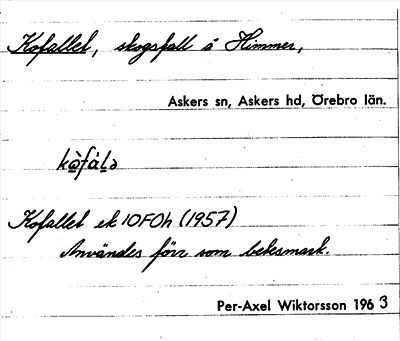 Kofallet, skogsfall å Himmer,
Askers sn, Askers hd, Örebro län.
kò̱fàḻə
Kofallet ek 10F0h (1957)
Användes förr som betesmark.
Per-Axel Wiktorsson 1963